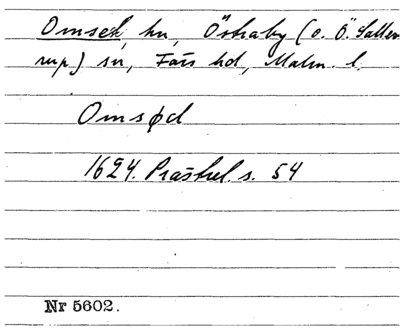 Omsek, hn, Östraby (o. Ö. Saller
rup) sn, Färs hd, Malm. l.
Omsød
1624. Prästrel. s. 54
Nr 5602.